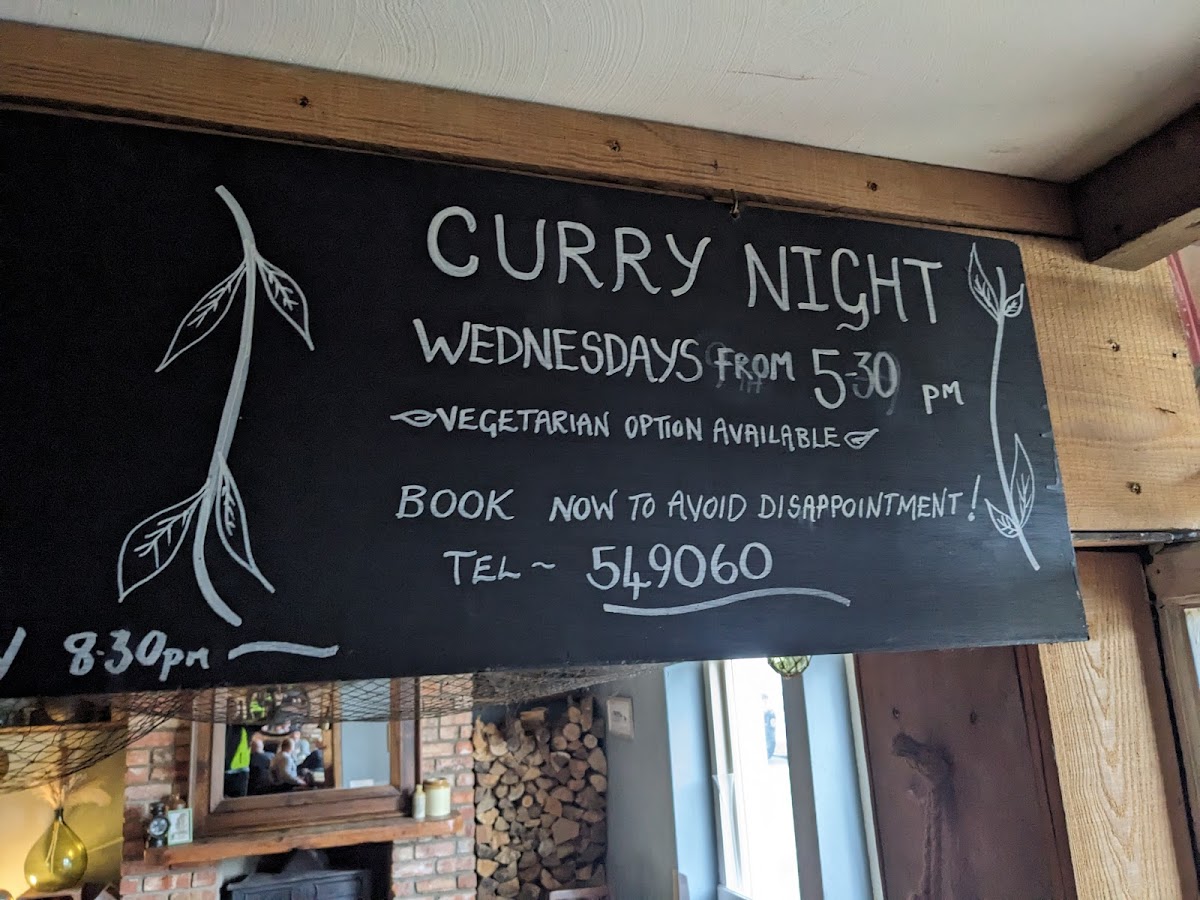 CURRY NIGHT
WEDNESDAYS FROM 5-30 PM
VEGETARIAN OPTION AVAILABLE
BOOK NOW TO AVOID DISAPPOINTMENT!
TEL ~ 549060
8.30pm